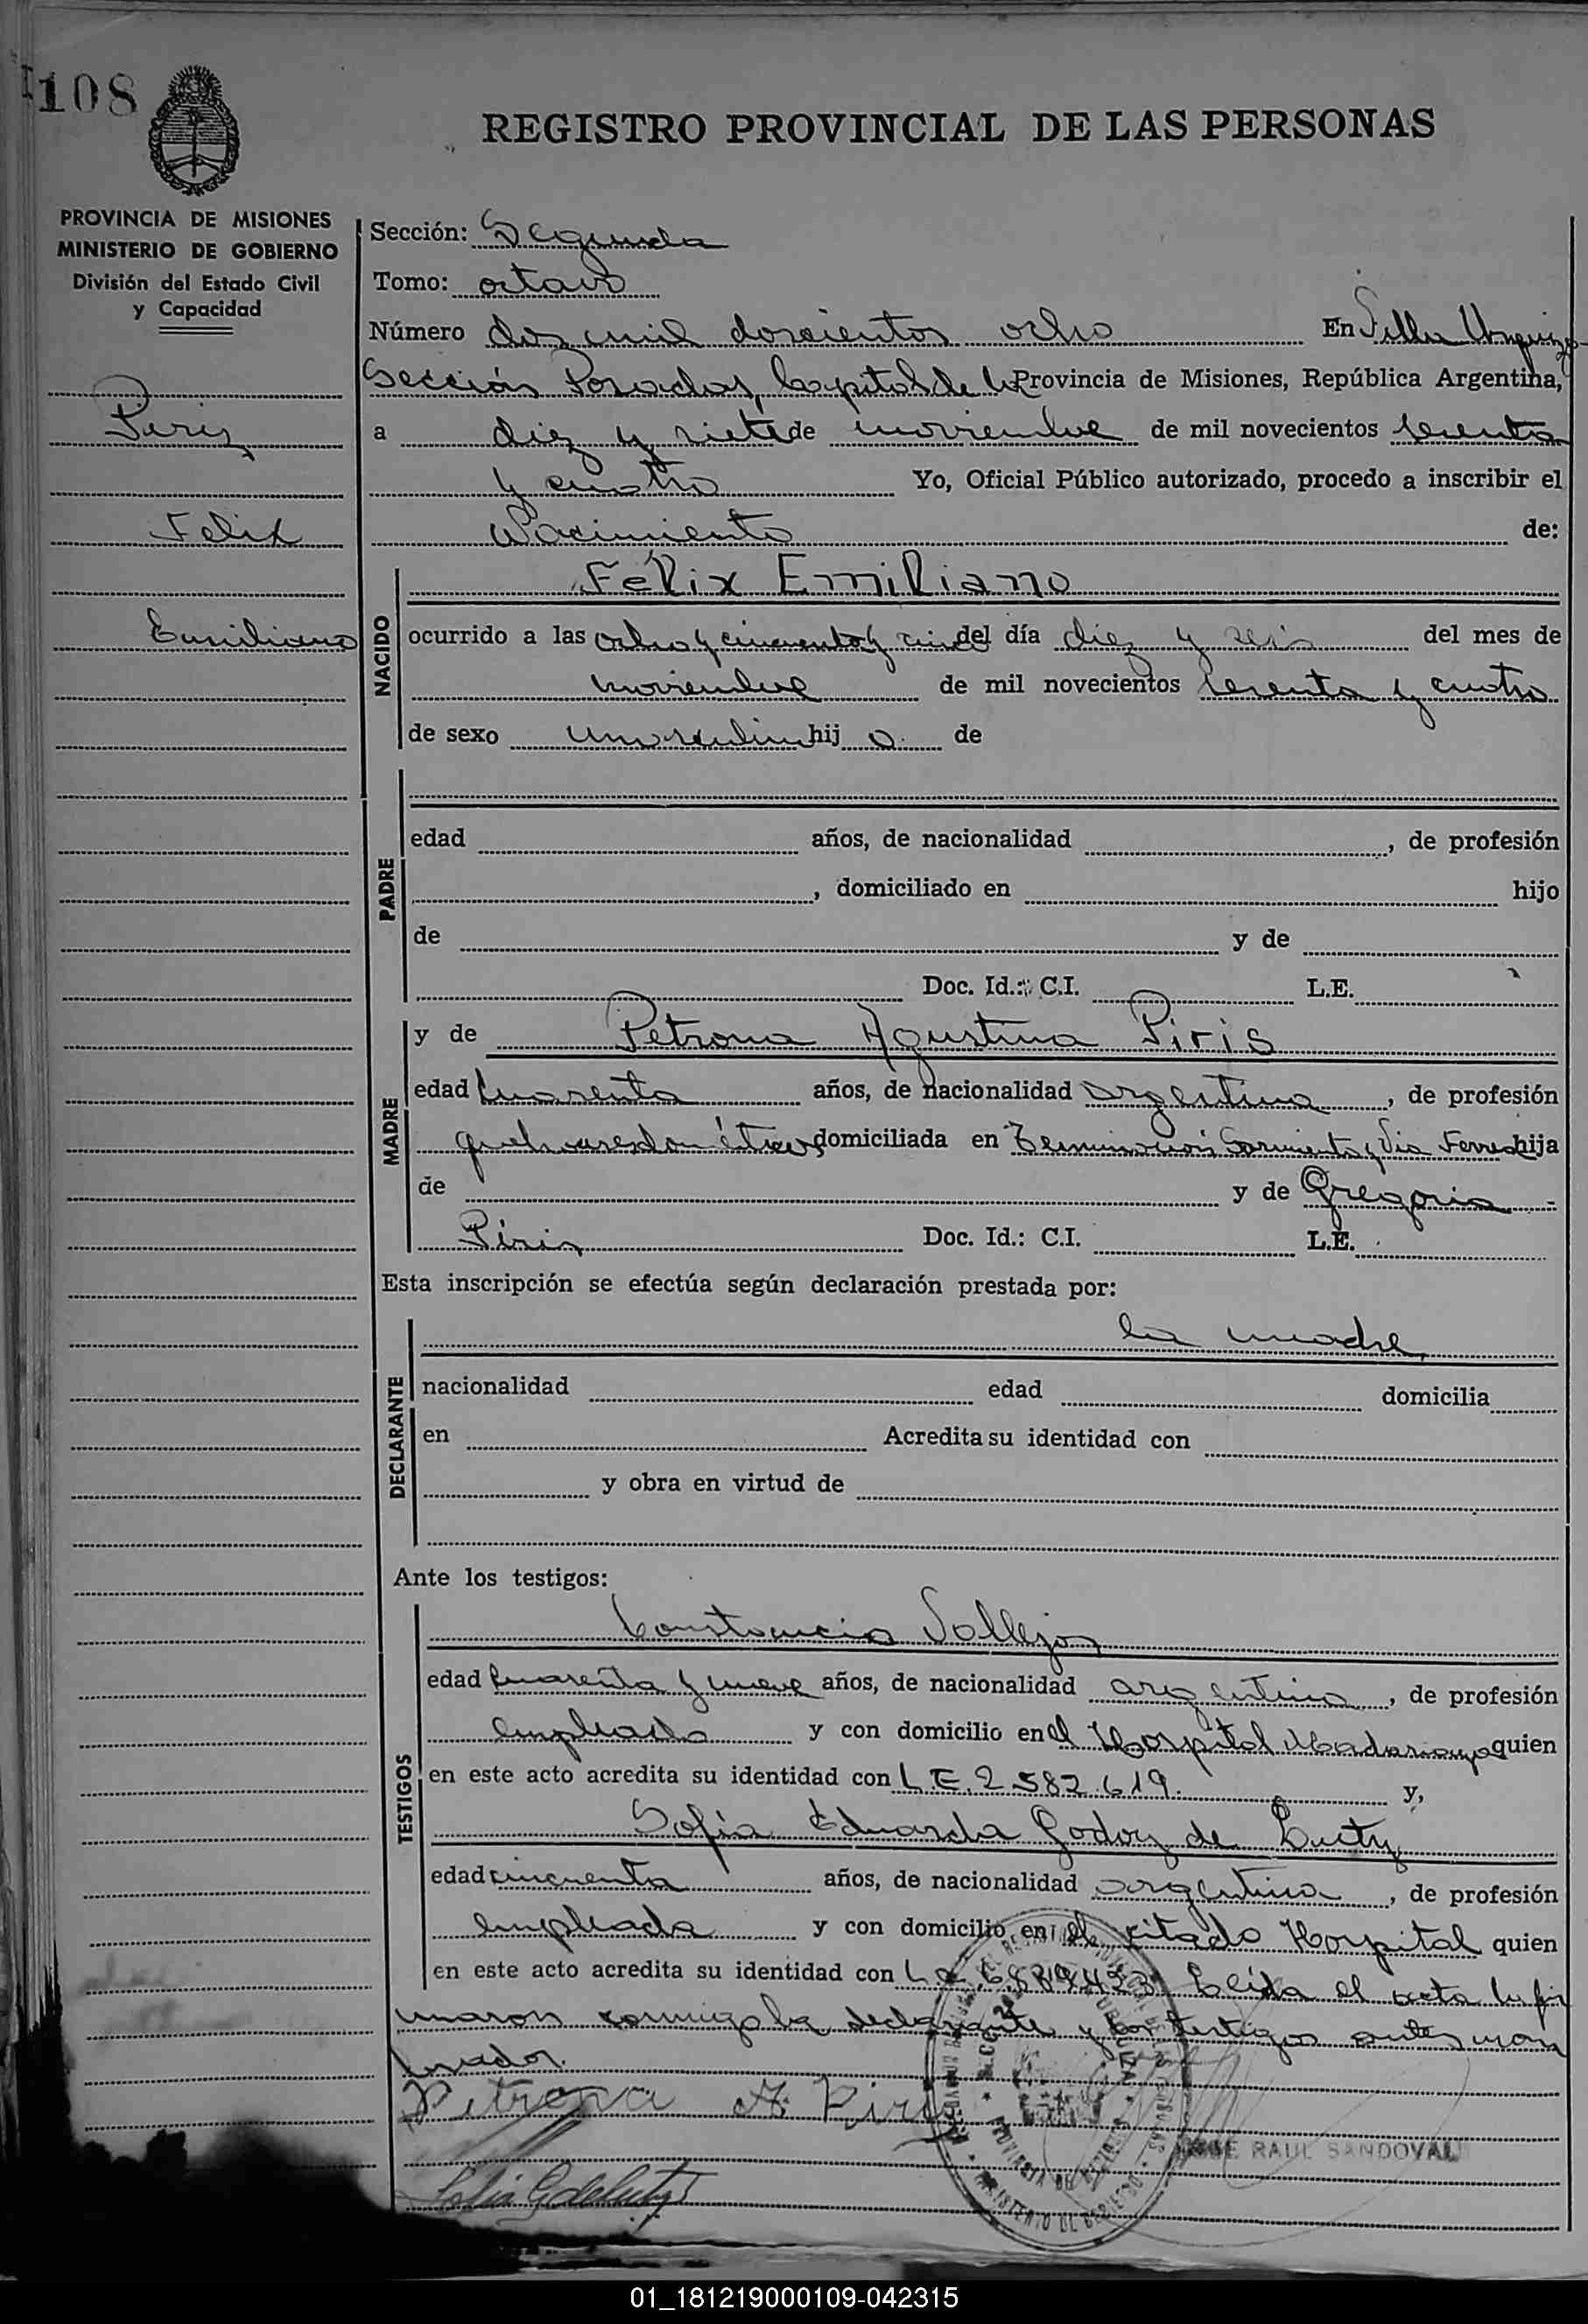 108
REGISTRO PROVINCIAL DE LAS PERSONAS
PROVINCIA DE MISIONES
MINISTERIO DE GOBIERNO
División del Estado Civil
y Capacidad
Piris
Felix
Emiliano
Sección: Segunda
Tomo: octavo
Número dos mil doscientos ocho En Villa Urquiza
Sección Posadas, Capital de la Provincia de Misiones, República Argentina,
a diez y siete de noviembre de mil novecientos sesenta
y cuatro Yo, Oficial Público autorizado, procedo a inscribir el
Nacimiento de:
NACIDO
Felix Emiliano
ocurrido a las ocho y cincuenta y del día diez y seis del mes de
noviembre de mil novecientos sesenta y cuatro
de sexo masculino hij o de
PADRE
edad años, de nacionalidad , de profesión
, domiciliado en hijo
de y de
Doc. Id.: C.I. L.E.
MADRE
y de Petrona Agustina Piris
edad cuarenta años, de nacionalidad argentina, de profesión
quehaceres domésticos domiciliada en Terminación Sarmiento y Vía Ferrea hija
de y de Gregoria
Piris Doc. Id.: C.I. L.E.
Esta inscripción se efectúa según declaración prestada por:
DECLARANTE
la madre
nacionalidad edad domicilia
en Acredita su identidad con
y obra en virtud de
Ante los testigos:
TESTIGOS
Constancio Vallejos
edad cuarenta y nueve años, de nacionalidad argentino, de profesión
empleado y con domicilio en el Hospital Madariaga quien
en este acto acredita su identidad con L.E. 2.582.619. y,
Sofia Eduarda Godoy de
edad cincuenta años, de nacionalidad argentina, de profesión
empleada y con domicilio en el citado Hospital quien
en este acto acredita su identidad con Leída el acta la fir
maron conmigo la declarante y los testigos antes
Petrona A. Piris
JOSE RAUL SANDOVAL
01_181219000109-042315